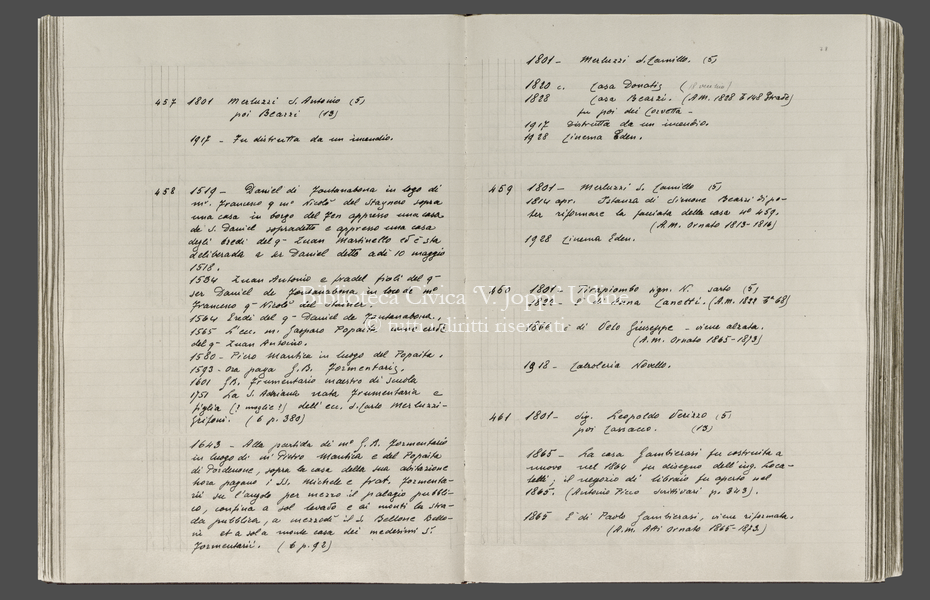 457 1801 Merluzzi S. Antonio (5)
poi Bearzi (13)
1917 - Fu distrutta da un incendio.
458 1519 - Daniel di Fontanabona in logo di
mr. Franceno q mr Nicolò del Stagnaro sopra
una casa in borgo del Fen appresso una casa
de S. Daniel sopradetto e appreno una casa
degli eredi del q- Zuan Martinello ed è sta
deliberada a ser Daniel detto adì 10 maggio
1518.
1534 Zuan Antonio e fradel fioli del q-
ser Daniel de Fontanabona in loco de mo
Franceno q- Nicolò del
1564 Eredi del q- Daniel de Fontanabona.
1565 L'ecc. m. Gasparo Popaita
del q- Zuan Antonio.
1580 - Piero Mantica in luogo del Popaita.
1593 - Ora paga G.B. Formentariz.
1601 G.B. Frumentario maestro di scuola
1751 La S. Adriana nata Frumentaria e
figlia (? moglie?) dell'ecc. S. Carlo Merluzzi-
Grifoni. (6 p. 380)
1643 - Alla partida di mo G.B. Formentario
in luogo di m Pietro Mantica e del Popaita
di Pordenone, sopra la casa della sua abitazione
hora pagano i SS. Michele e frat. Formenta-
rii su l'angolo per mezzo il palagio pubbli-
co, confina a sol levato e ai monti la stra-
da pubblica, a mezzodì il S. Bellone Bello-
ni et a sol a monte casa dei medesimi Sri
Formentarii. (6 p. 92)
28
1801 - Merluzzi S. Camillo. (5)
1820 c. Casa Donatis
1828 Casa Bearzi. (A.M. 1828 F 148 Strade)
fu poi dei Corvetta -
1917 Distrutta da un incendio.
1928 Cinema Eden.
459 1801 - Merluzzi S. Camillo (5)
1814 apr. Istanza di Simone Bearzi di po-
ter riformare la facciata della casa no 459.
(A.M. Ornato 1813-1816)
1928 Cinema Eden.
460 1801 - Tirapiombo sign. N. sarto (5)
1822 - Canetti. (A.M. 1822 Fo 68)
1864 è di Velo Giuseppe - viene alzata.
(A.M. Ornato 1865-1873)
1918 - Calzoleria Novello.
461 1801 - Sig. Leopoldo Verizzo (5)
poi Cassacco. (13)
1865 - La casa Gambierasi fu costruita a
nuovo nel 1864 su disegno dell'ing. Loca-
telli; il negozio di libraio fu aperto nel
1865. (Antonio Picco Scritti vari p. 343).
1865 È di Paolo Gambierasi, viene riformata.
(A.M. Atti Ornato 1865-1873.)
Biblioteca Civica 'V. Joppi' Udine
© tutti i diritti riservati